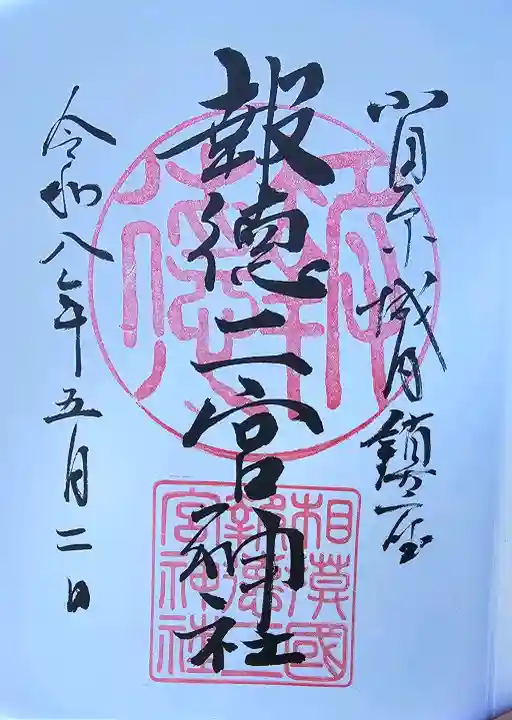 小田原城内鎮座
報徳二宮神社
令和八年五月二日
相莫國
報徳二
宮神社